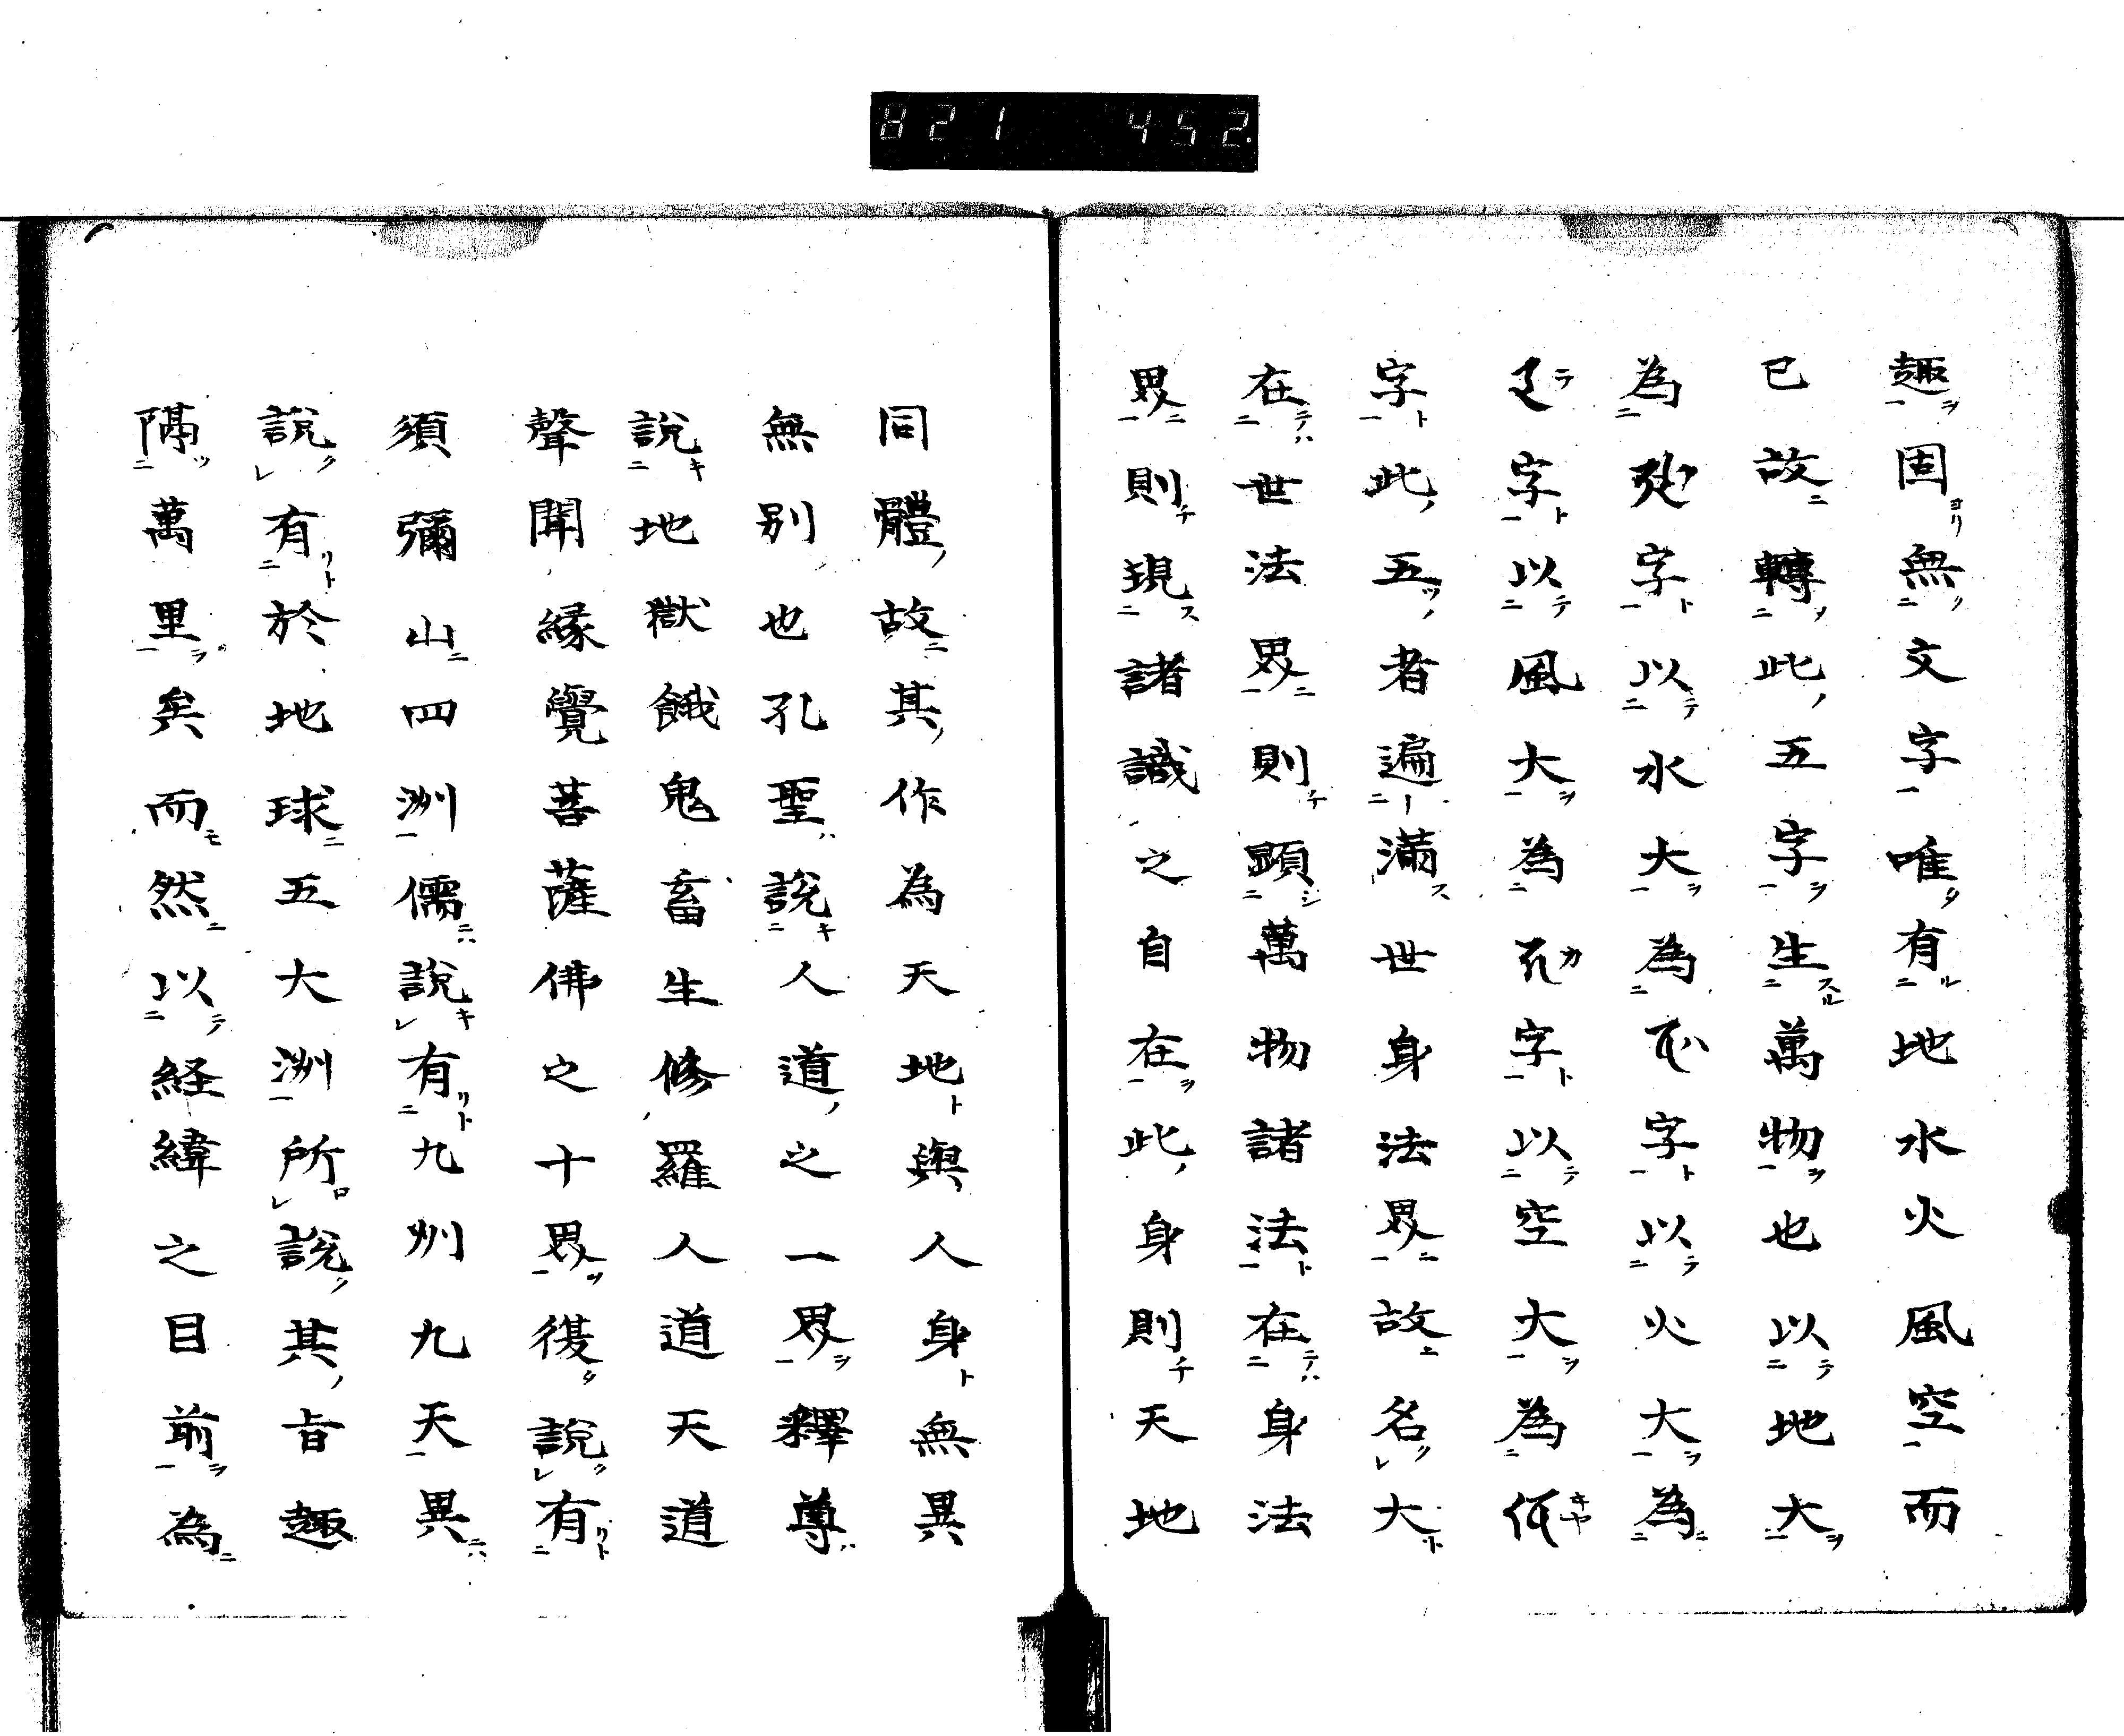 821 452
趣固無文字唯有地水火風空而
已故轉此五字生萬物也以地大
為字以水大為字以火大為
字以風大為字以空大為
字此五者遍滿世身法界故名大
在世法界則顕萬物諸法在身法
界則現諸識之自在此身則天地
同體故其作為天地與人身無異
無別也孔聖說人道之一界釋尊
說地獄餓鬼畜生修羅人道天道
聲聞縁覺菩薩佛之十界復說有
須彌山四洲儒說有九州九天異
說有於地球五大洲所說其旨趣
隔萬里矣而然以経緯之目前為